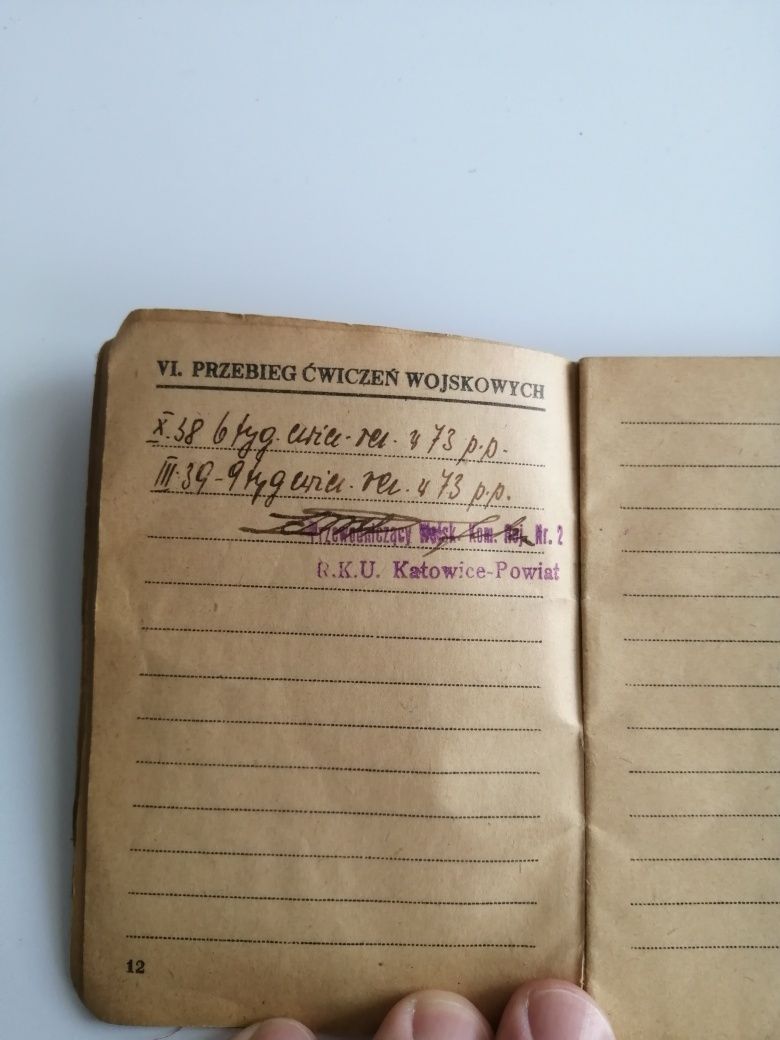 VI. PRZEBIEG ĆWICZEŃ WOJSKOWYCH
X.38 6 tyg. ćwicz. rez. w 73 p.p.
III.39-9 tyg ćwicz. rez. w 73 p.p.
Przewodniczący Wojsk. Kom. Rej. Nr. 2
R.K.U. Katowice-Powiat
12